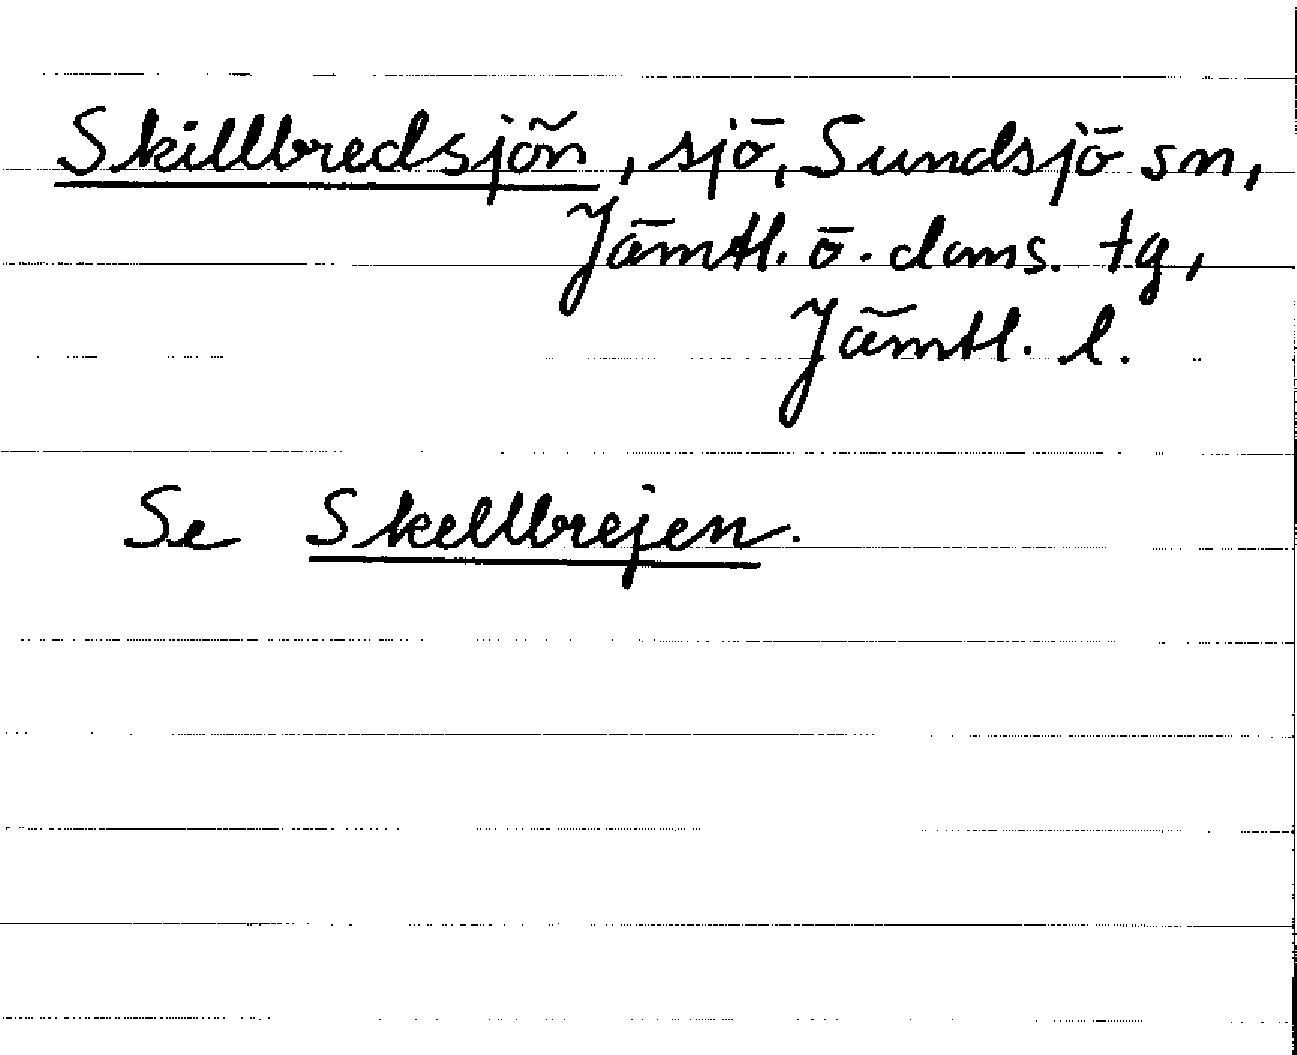 Skillbredsjön, sjö, Sundsjö sn,
Jämtl. ö. doms. tg,
Jämtl. l.
Se Skellbrejen.